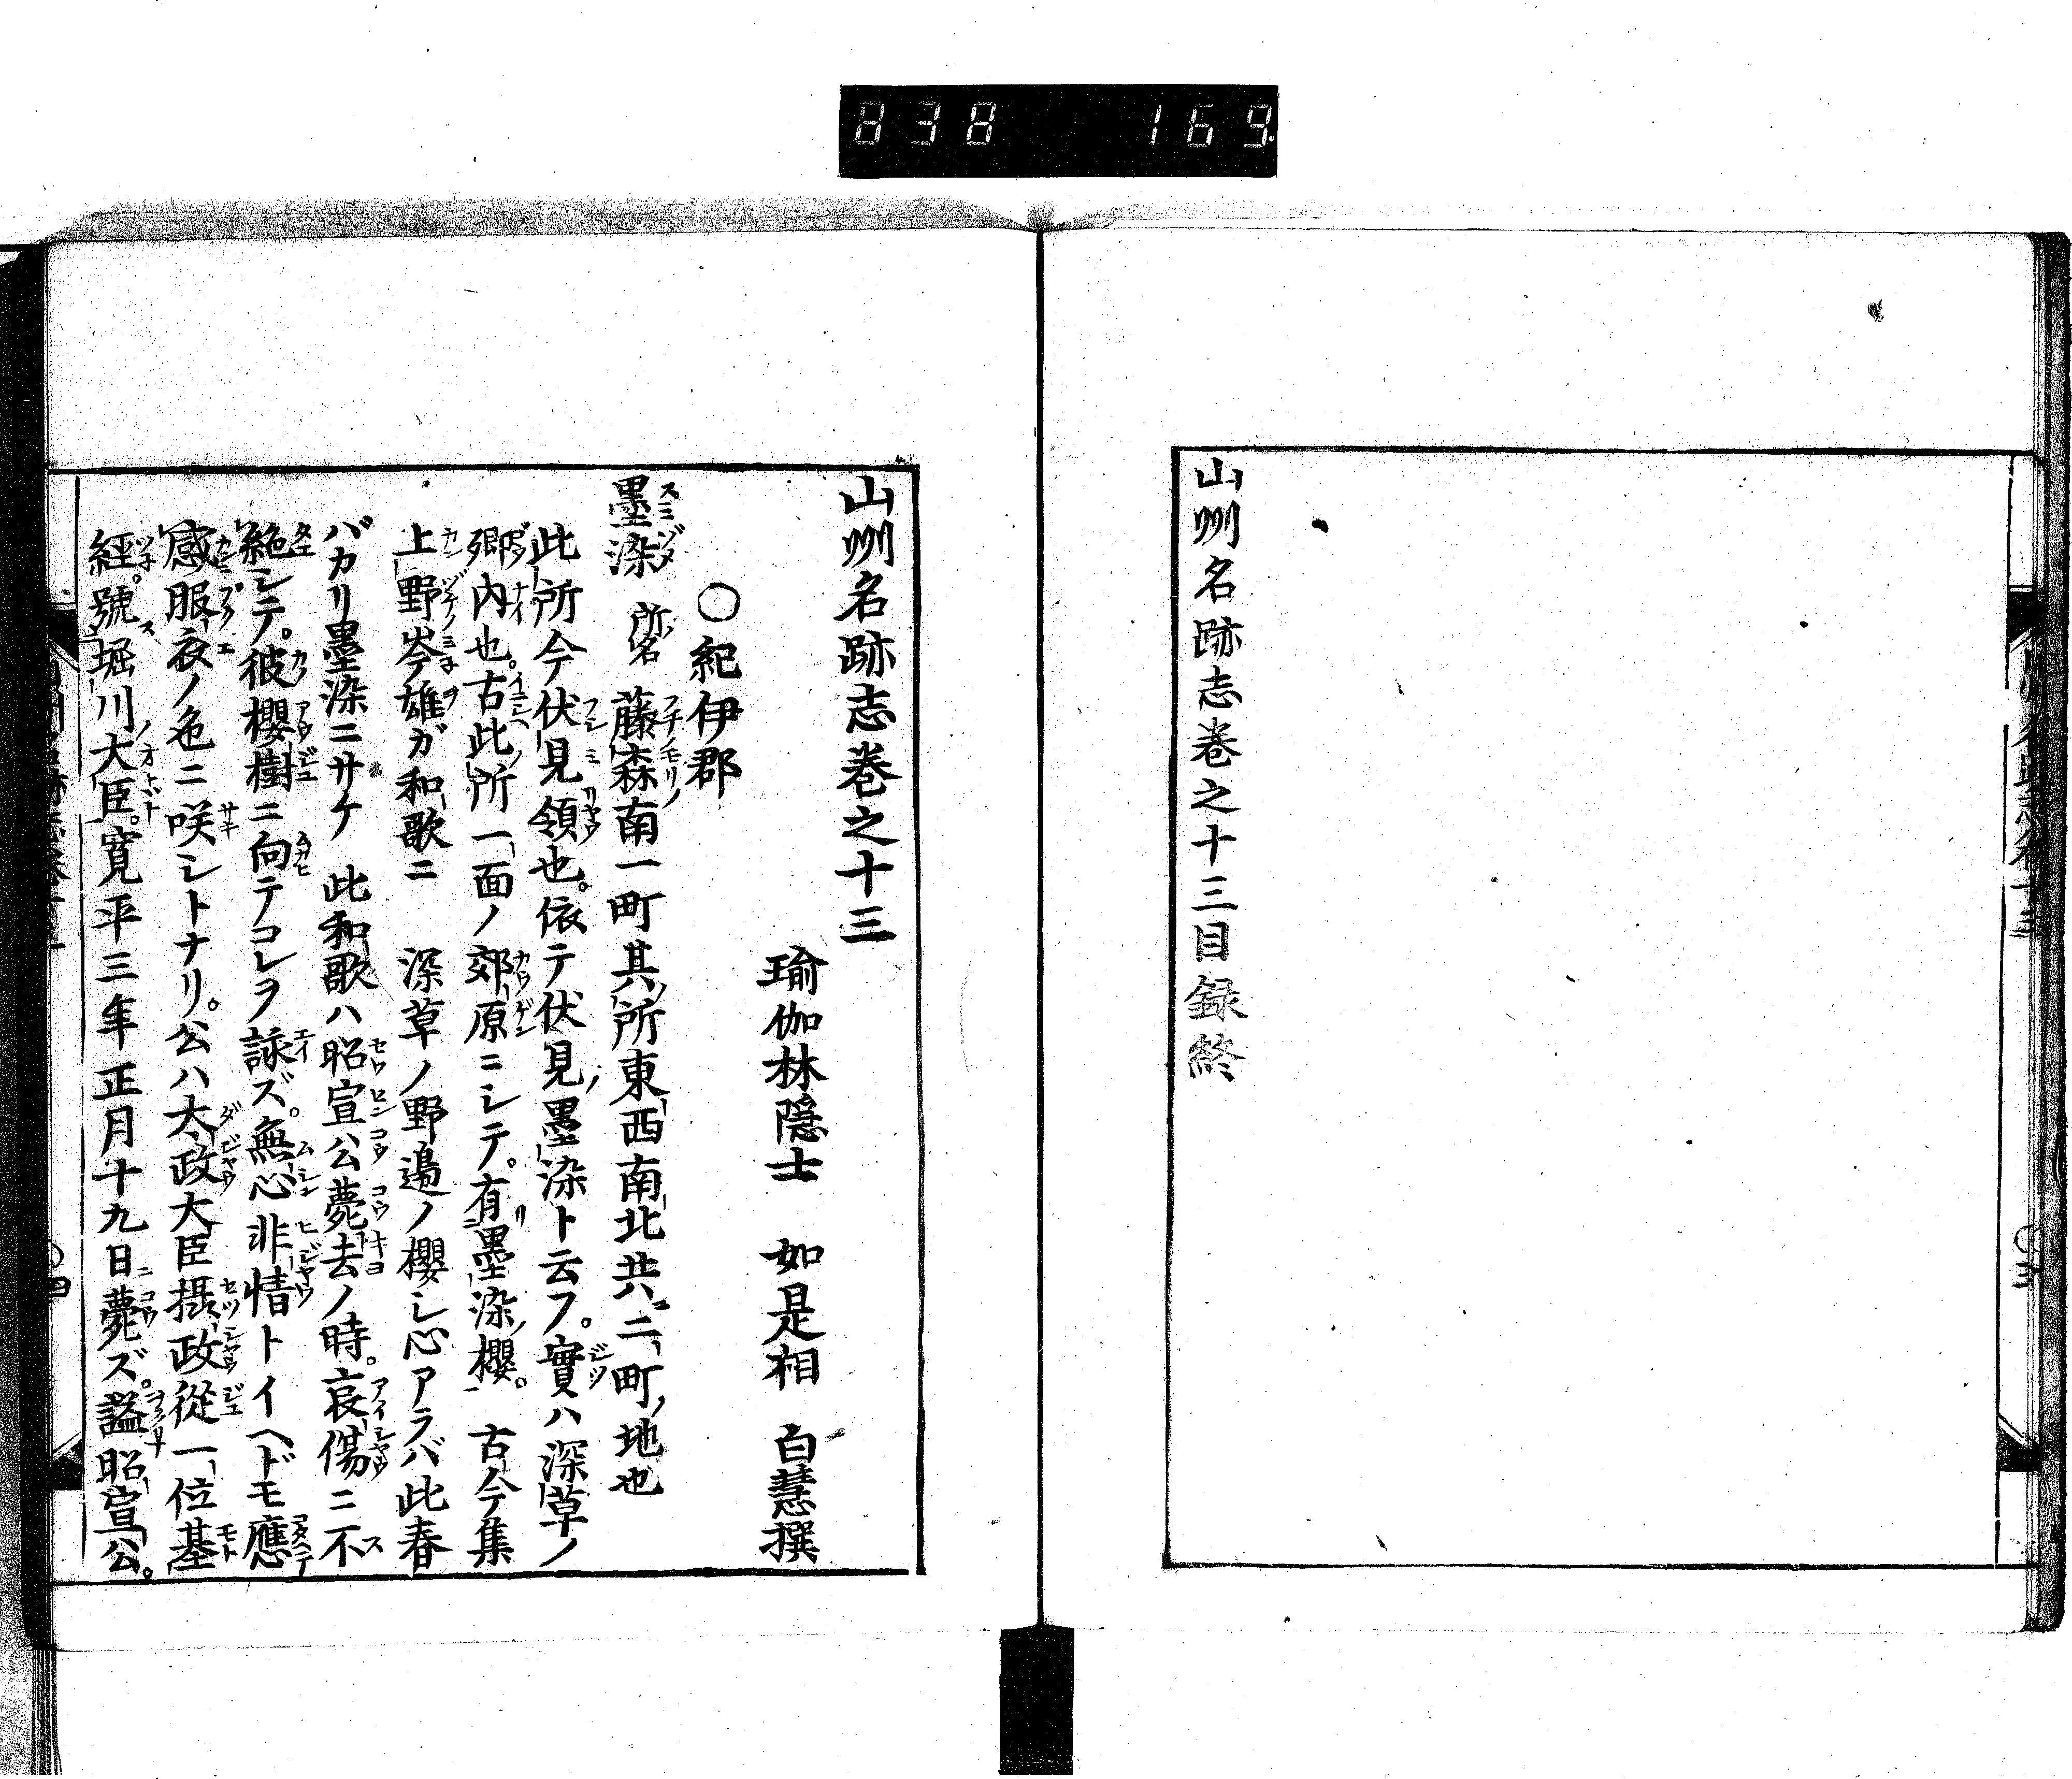 838 169
山州名跡志巻之十三目録終
山州名跡志巻之十三
瑜伽林隠士 如是相 白慧撰
○紀伊郡
墨染 名所 藤森南一町其所東西南北共二町ノ地也
此所今伏見領也。依テ伏見ノ墨染ト云フ。實ハ深草ノ
郷内也。古此所一面ノ郊原ニシテ。有墨染ノ櫻。古今集
上野岑雄ガ和歌ニ 深草ノ野邉ノ櫻シ心アラバ此春
バカリ墨染ニサケ 此和歌ハ昭宣公薨去ノ時。哀傷ニ不
絶シテ。彼櫻樹ニ向テコレヲ詠ズ。無心非情トイヘドモ應
感服衣ノ色ニ咲シトナリ。公ハ太政大臣摂政從一位基
經。號堀川大臣。寛平三年正月十九日薨ズ。謚昭宣公。